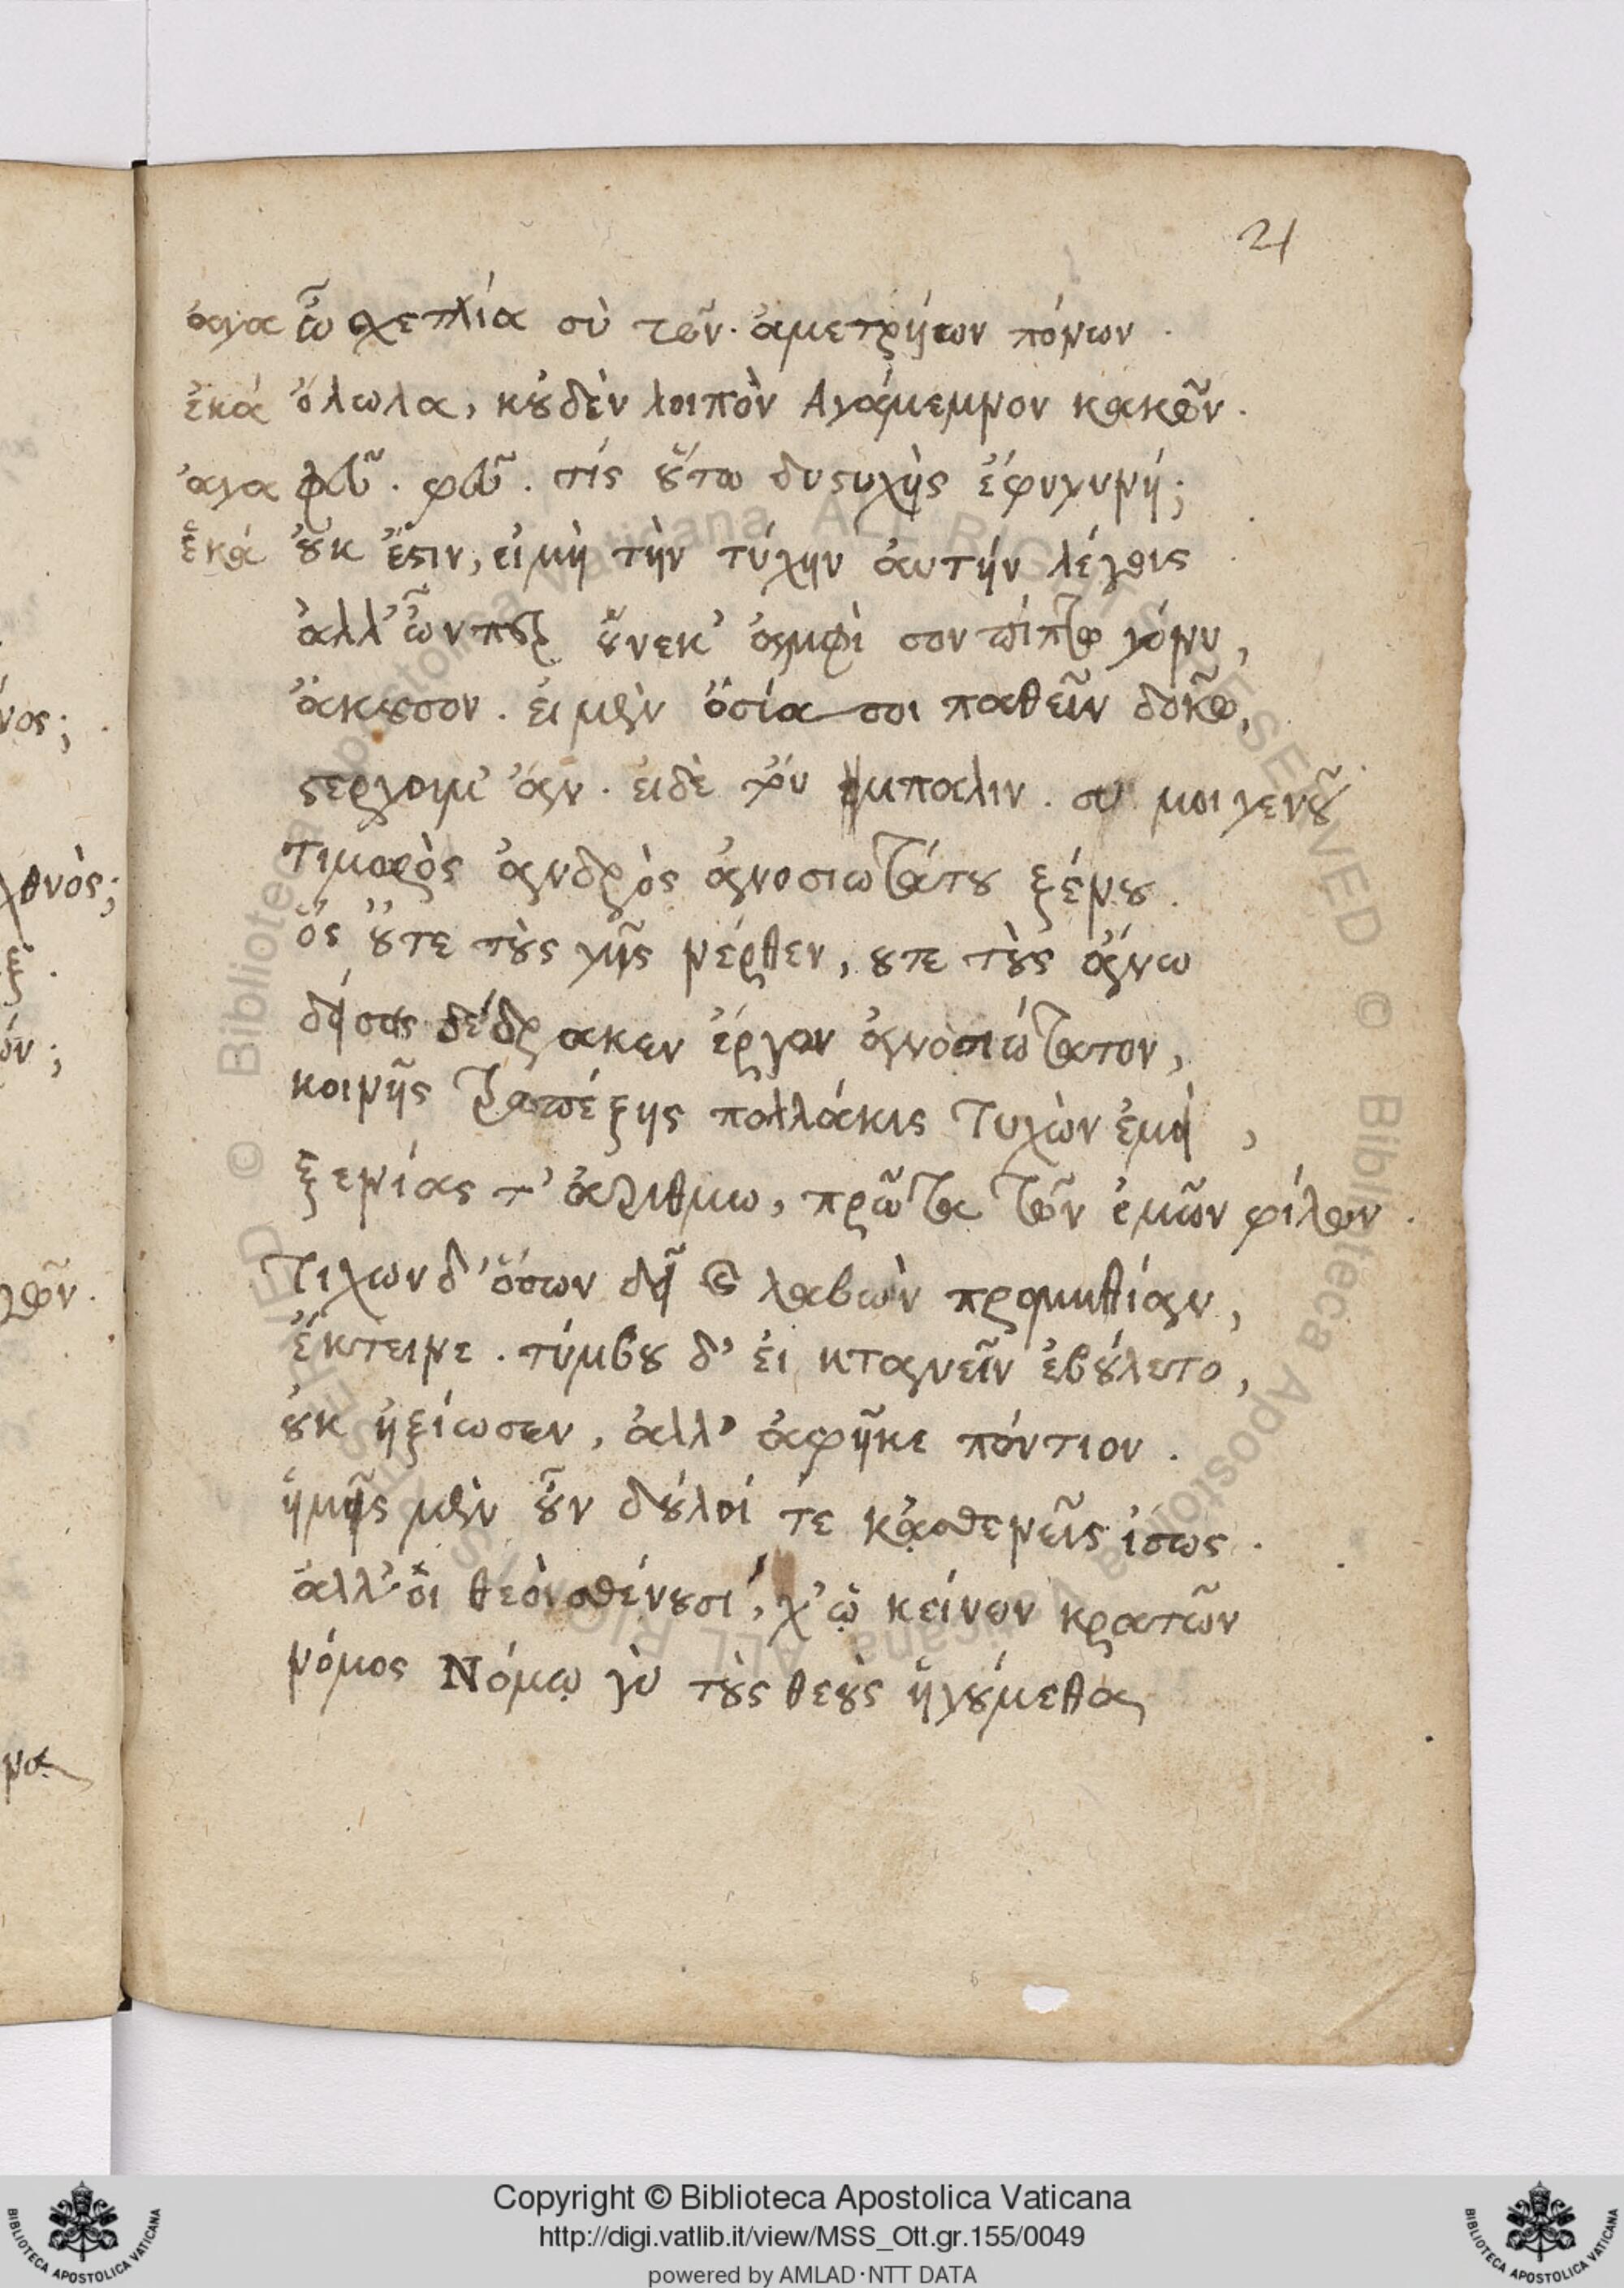 21
ἀγα ὦ σχετλία σὺ τῶν ἀμετρήτων πόνων.
ἑκά ὄλωλα, κοὐδὲν λοιπὸν Ἀγάμεμνον κακῶν.
ἀγα φεῦ. φεῦ. τίς οὕτω δυστυχὴς ἔφυ γυνή;
ἑκά οὐκ ἔστιν, εἰ μὴ τὴν τύχην αὐτήν λέγοις
ἀλλ' ὧνπερ οὕνεκ' ἀμφὶ σον πίπτω γόνυ,
ἄκουσον. εἰ μὲν ὅσία σοι παθεῖν δοκῶ,
στεργοιμ' ἄν. εἰ δὲ τοὔμπαλιν. σύ μοι γενοῦ
τιμωρὸς ἀνδρὸς ἀνοσιωτάτου ξένου.
ὃς οὔτε τοὺς γῆς νέρθεν, ουτε τοὺς ἄνω
δείσας δέδρακεν ἔργον ἀνοσιώτατον,
κοινῆς τραπέζης πολλάκις τυχὼν ἐμοί,
ξενίας τ' ἀριθμω, πρῶτα τῶν ἐμῶν φίλων.
τιχων δ' ὅσων δεῖ λαβὼν προμηθίαν,
ἔκτεινε. τύμβου δ' εἰ κτανεῖν ἐβούλετο,
οὐκ ἠξίωσεν, ἀλλ' ἀφῆκε πόντιον.
ἡμεῖς μὲν οὖν δοῦλοί τε κᾀσθενεῖς ἴσως.
ἀλλ' οἱ θεοὶ σθένουσι, χ' ᾧ κείνων κρατῶν
νόμος Νόμῳ γὰρ τοὺς θεοὺς ἡγούμεθα
νος;
θνός;
ξ.
όν;
Copyright © Biblioteca Apostolica Vaticana
http://digi.vatlib.it/view/MSS_Ott.gr.155/0049
powered by AMLAD·NTT DATA
BIBLIOTECA APOSTOLICA VATICANA
BIBLIOTECA APOSTOLICA VATICANA
© Biblioteca Apostolica Vaticana ALL RIGHTS RESERVED
© Biblioteca Apostolica Vaticana ALL RIGHTS RESERVED